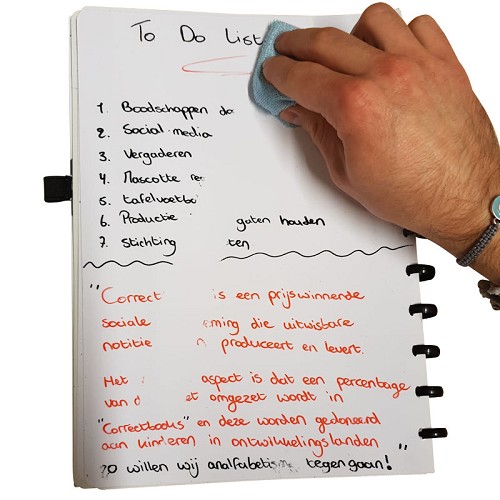 To Do List
1. Boodschappen do
2. Social media
3. Vergaderen
4. Mascotte re
5. tafelvoetba
6. Productie gaten houden
7. Stichting ten
"Correct is een prijswinnende
sociale eming die uitwisbare
notitie n produceert en levert.
Het aspect is dat een percentage
van d et omgezet wordt in
"Correctbooks" en deze worden gedoneerd
aan kinderen in ontwikkelingslanden "
zo willen wij analfabetism tegengaan!